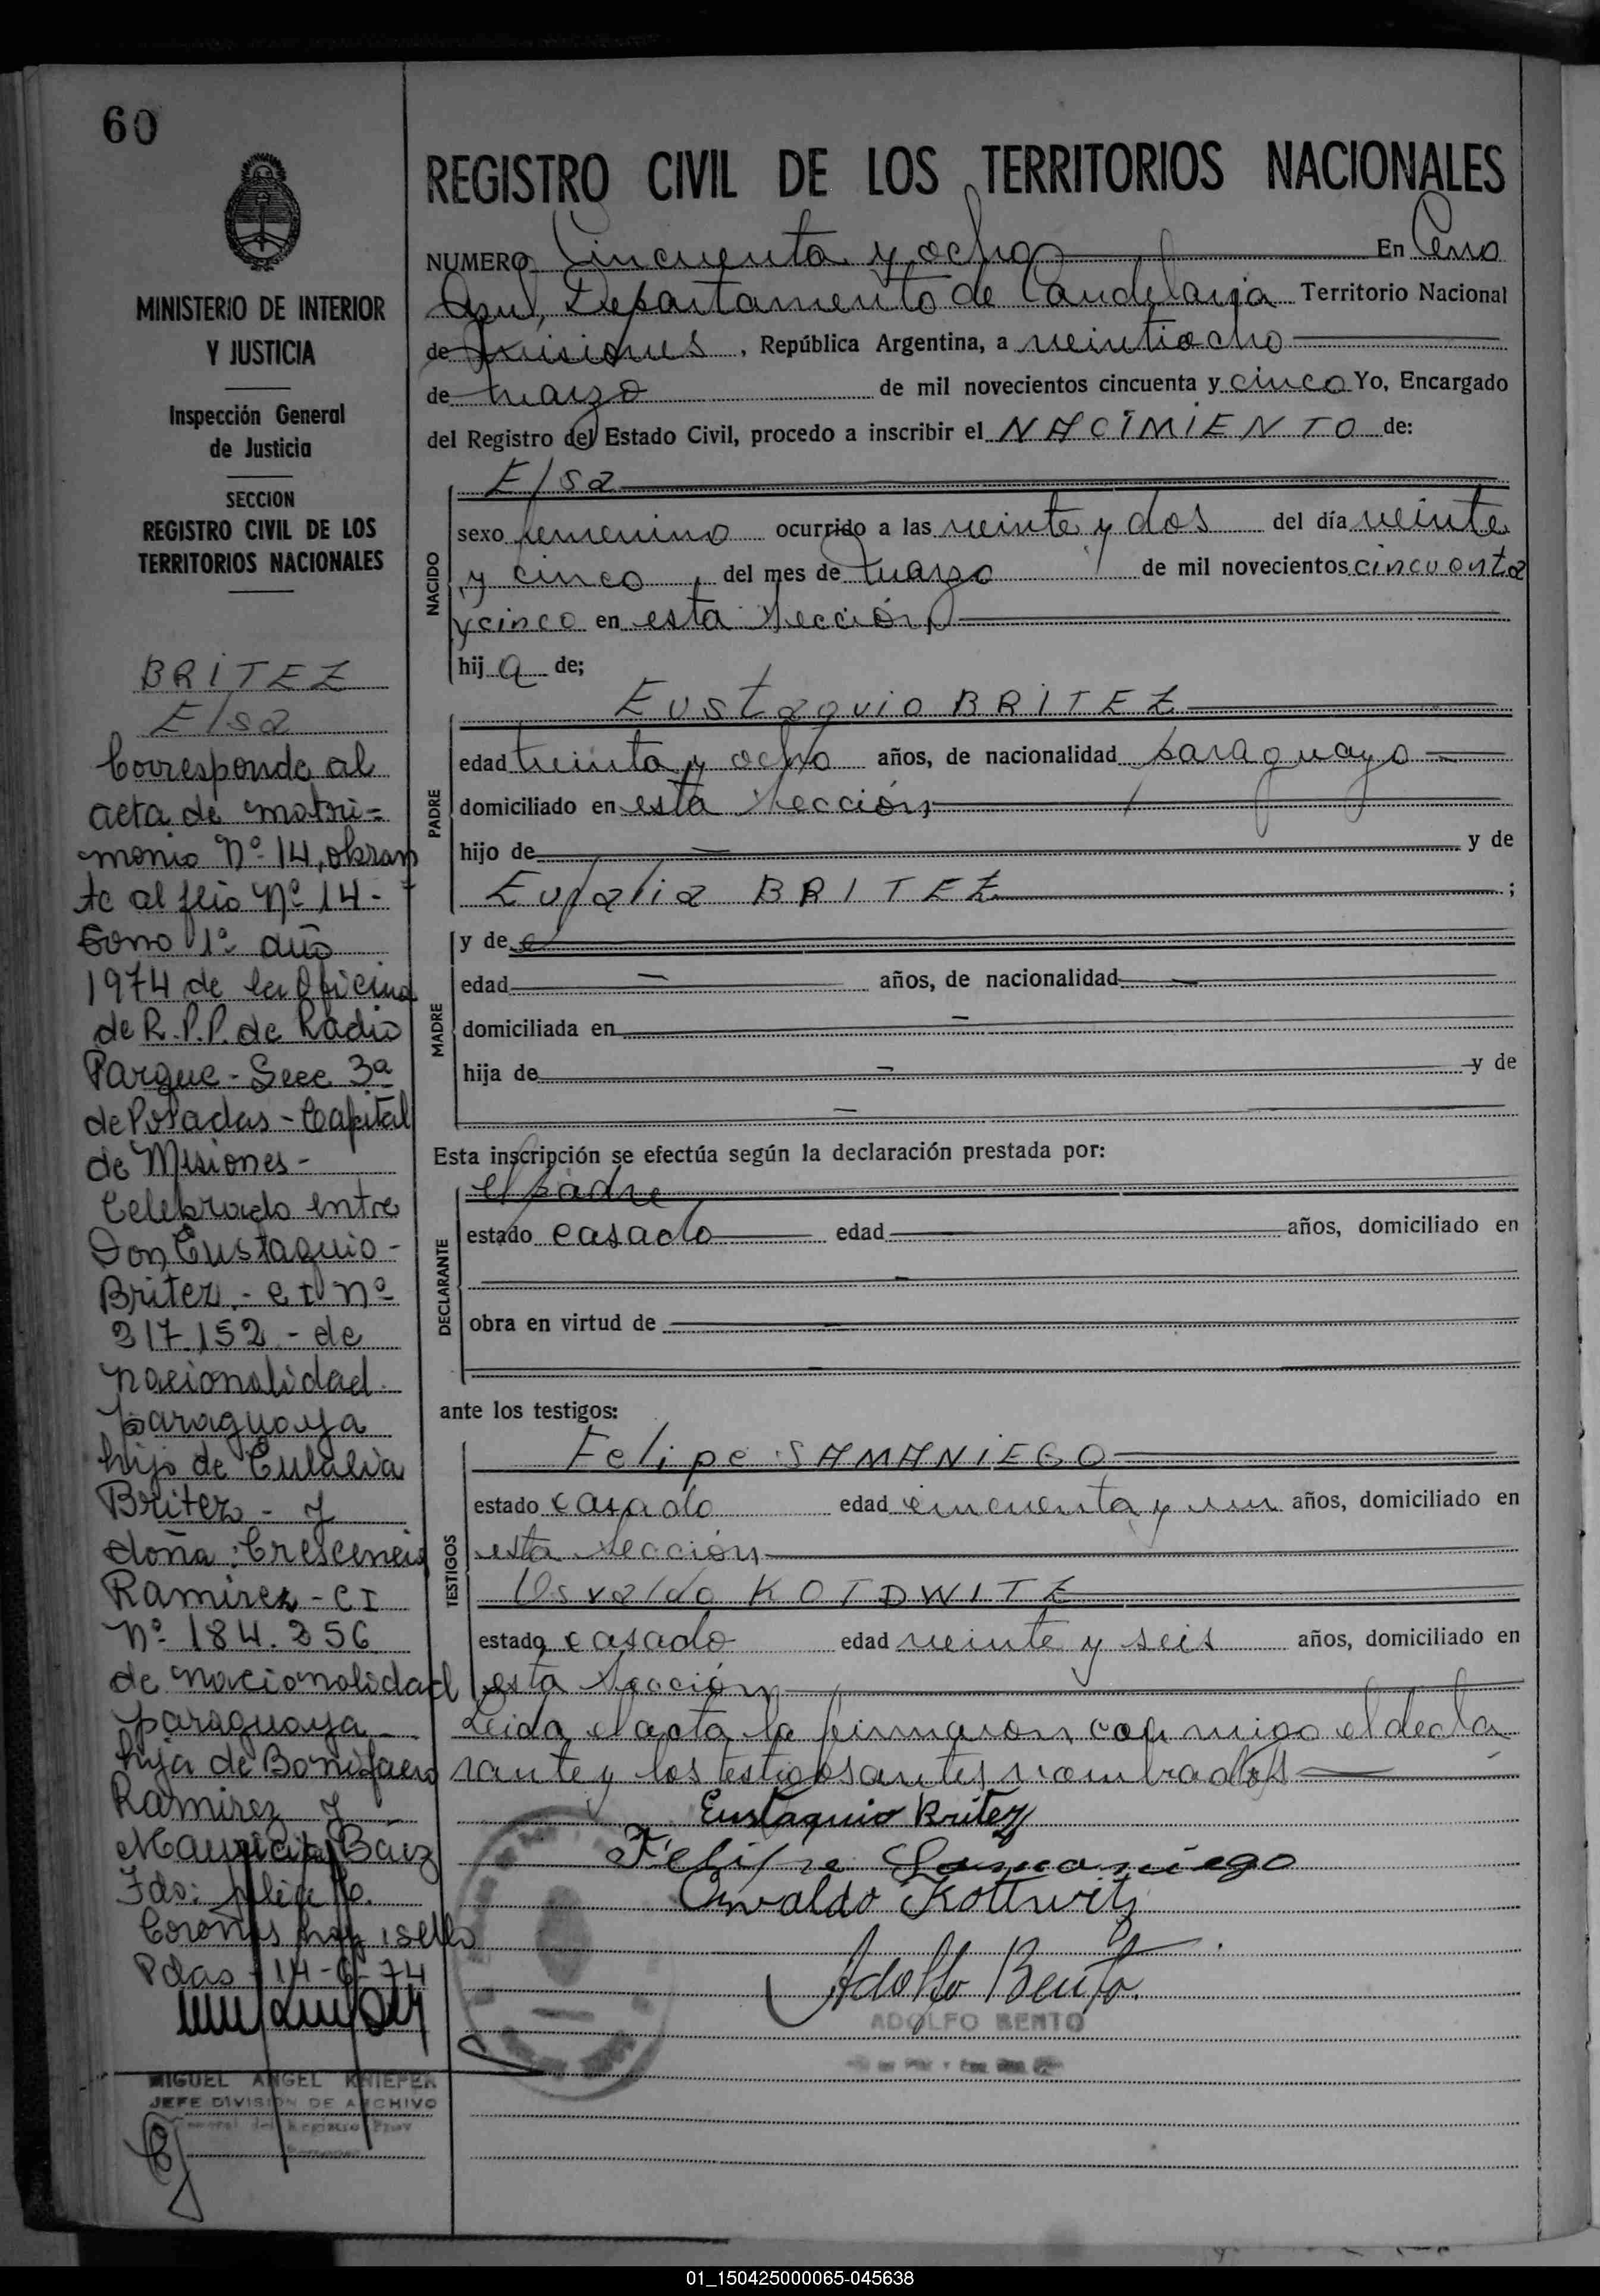 60
MINISTERIO DE INTERIOR
Y JUSTICIA
Inspección General
de Justicia
SECCION
REGISTRO CIVIL DE LOS
TERRITORIOS NACIONALES
BRITEZ
Elsa
Corresponde al
acta de matri=
monio Nº 14, obran
te al flio Nº 14 -
Tomo 1º año
1974 de la Oficina
de R.P.P. de Radio
Parque - Secc 3ª
de Posadas - Capital
de Misiones -
Celebrado entre
Don Eustaquio -
Britez - CI Nº
217.152 - de
nacionalidad
paraguaya
hijo de Eulalia
Britez - y
doña: Crescencia
Ramirez - CI
Nº 184.256
de nacionalidad
paraguaya
hija de Bonifacio
Ramirez y
Báez
Fdo:
hay 1 sello
Pdas 14-6-74
MIGUEL ANGEL KNIEFER
JEFE DIVISION DE ARCHIVO
REGISTRO CIVIL DE LOS TERRITORIOS NACIONALES
NUMERO Cincuenta y ocho En Cerro
Azul, Departamento de Candelaria Territorio Nacional
de Misiones, República Argentina, a veintiocho
de marzo de mil novecientos cincuenta y cinco Yo, Encargado
del Registro del Estado Civil, procedo a inscribir el NACIMIENTO de:
Elsa
NACIDO
sexo femenino ocurrido a las veinte y dos del día veinte
y cinco, del mes de marzo de mil novecientos cincuenta
y cinco en esta Sección
hij a de;
Eustaquio BRITEZ
PADRE
edad treinta y ocho años, de nacionalidad paraguayo
domiciliado en esta Sección;
hijo de y de
Eulalia BRITEZ ;
MADRE
y de
edad años, de nacionalidad
domiciliada en
hija de y de
Esta inscripción se efectúa según la declaración prestada por:
el padre
DECLARANTE
estado casado edad años, domiciliado en
obra en virtud de
ante los testigos:
Felipe SAMANIEGO
TESTIGOS
estado casado edad cincuenta y un años, domiciliado en
esta Sección
Osvaldo KOTDWITZ
estado casado edad veinte y seis años, domiciliado en
esta Sección
Leida el acta la firmaron conmigo el decla
rante y los testigos antes nombrados
Eustaquio Britez
Felipe Samaniego
Osvaldo Kottwitz
Adolfo Bento.
ADOLFO BENTO
01_150425000065-045638